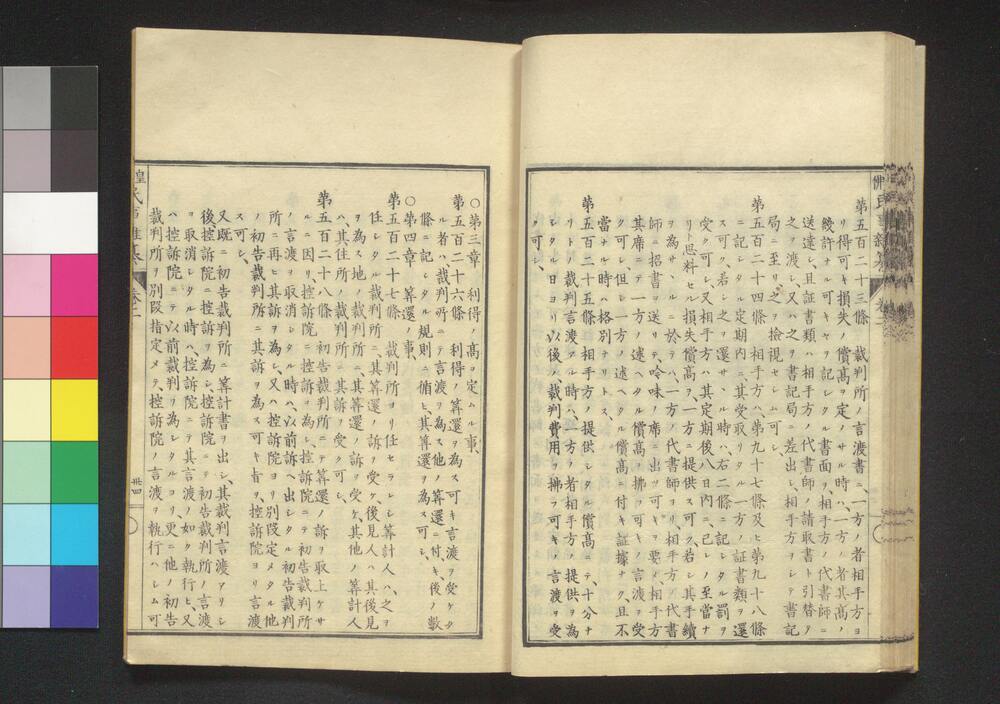 第五百二十三條 裁判所ノ言渡書ニ一方ノ者相手方ヨ
リ得可キ損失ノ償高ヲ定メサル時ハ、一方ノ者其高ノ
幾許ナル可キヤヲ記シタル書面ヲ、相手方ノ代書師ニ
送達シ、且証書類ハ相手方ノ代書師ノ請取書ト引替ヲ
之ヲ渡シ、又ハ之ヲ書記局ニ差出シ、相手方ヲシテ書記
局ニ至リ、之ヲ檢視セシム可シ、
第五百二十四條 相手方ハ、第九十七條及ヒ第九十八條
ニ記シタル定期内ニ、其受取リタル一方ノ証書類ヲ還
ス可ク、若シ之ヲ還サヽル時ハ、右二條ニ記シタル罰ヲ
受ク可シ、又相手方ハ其定期後八日内ニ、己レノ至當ナ
リト思料セル損失償高ヲ、一方ニ提供ス可ク、若シ其手續
ヲ為サヽルニ於テハ、一方ノ代書師ヨリ、相手方ノ代書
師ニ招書ヲ送リテ、吟味ノ席ニ出ツ可キヲ要メ、相手方
其席ニテ一方ノ述ヘタル償高ヲ拂フ可キノ言渡ヲ受
ク可シ、但シ一方ノ述ヘタル償高ニ付キ証據ナク、且不
當ナル時ハ格別ナリトス、
第五百二十五條 相手方ノ提供シタル償高ニテ、十分ナ
リトノ裁判言渡アル時ハ、一方ノ者相手方ノ提供ヲ為
シタル日ヨリ以後ノ裁判費用ヲ拂フ可キノ言渡ヲ受
ク可シ、
○第三章 利得ノ高ヲ定ムル事、
第五百二十六條 利得ノ算還ヲ為ス可キ言渡ヲ受ケタ
ル者ハ、裁判所ニテ言渡ヲ為ス他ノ算還ニ付キ、後ノ數
條ニ記シタル規則ニ循ヒ、其算還ヲ為ス可シ、
○第四章 算還ノ事、
第五百二十七條 裁判所ヨリ任セラレシ算計人ハ、之ヲ
任シタル裁判所ニ、其算還ノ訴ヲ受ケ、後見人ハ其後見
ヲ為ス地ノ裁判所ニ、其算還ノ訴ヲ受ケ、其他ノ算計人
ハ、其住所ノ裁判所ニ其訴ヲ受ク可シ、
第五百二十八條 初告裁判所ニテ算還ノ訴ヲ取上ケサ
ルニ因リ、控訴院ニ控訴ヲ為シ、控訴院ニテ初告裁判所
ノ言渡ヲ取消シタル時ハ、以前訴ヘ出シタル初告裁判
所ニ再ヒ其訴ヲ為シ、又ハ控訴院ヨリ別段定メタル他
ノ初告裁判所ニ其訴ヲ為ス可キ旨ヲ、控訴院ヨリ言渡
ス可シ、
又既ニ初告裁判所ニ算計書ヲ出シ、其裁判言渡アリシ
後、控訴院ニ控訴ヲ為シ、控訴院ニテ初告裁判所ノ言渡
ヲ取消シタル時ハ、控訴院ニテ其言渡ノ如ク執行ヒ、又
ハ控訴院ニテ以前裁判ヲ為シタルヨリ更ニ他ノ初告
裁判所ヲ別段指定メテ、控訴院ノ言渡ヲ執行ハシム可
卅四